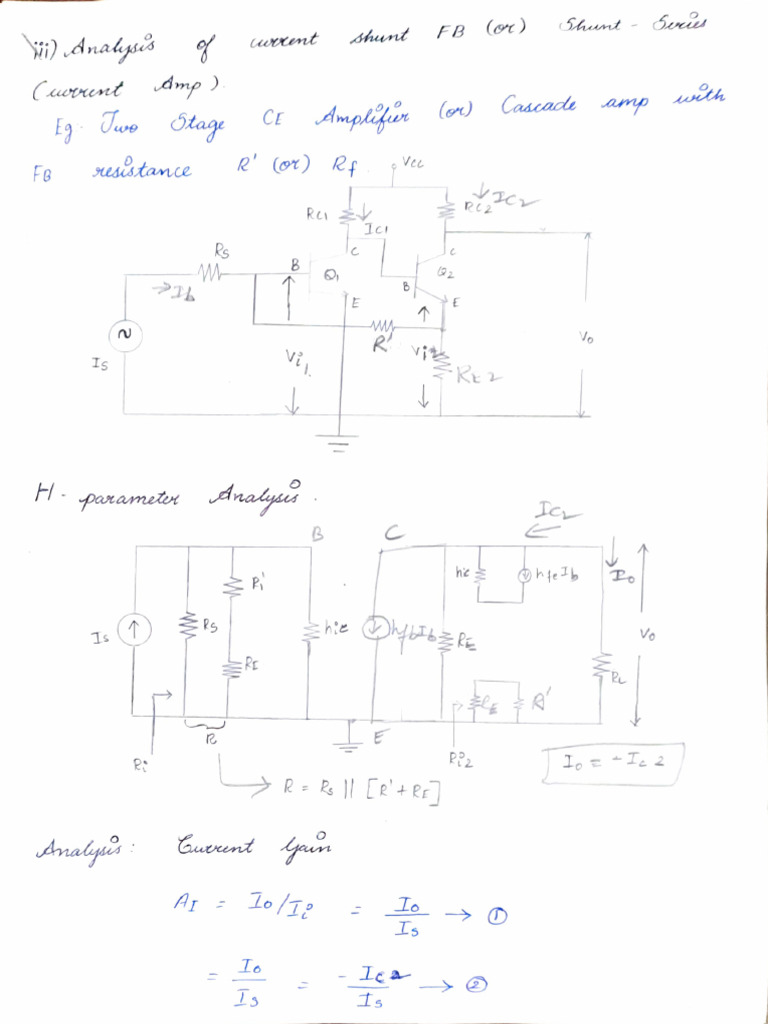 iii) Analysis of current shunt FB (or) Shunt - Series
(Current Amp).
Eg. Two Stage CE Amplifier (or) Cascade amp with
FB resistance R' (or) Rf.
Vcc
RC1
IC1
RC2
IC2
Rs
B
Q1
C
E
C
Q2
B
E
Ib
Is
R'
Vi1
Vi2
RE2
Vo
H - parameter Analysis.
IC2
B
C
hie
hfeIb
Io
R'
Is
Rs
RE
hie
hfbIb
RE
Vo
RL
RE
R'
Ri
R
E
Ri2
Io = -Ic2
R = Rs || [R' + RE]
Analysis: Current Gain
AI = Io/Ii = Io/Is → ①
= Io/Is = -Ic2/Is → ②